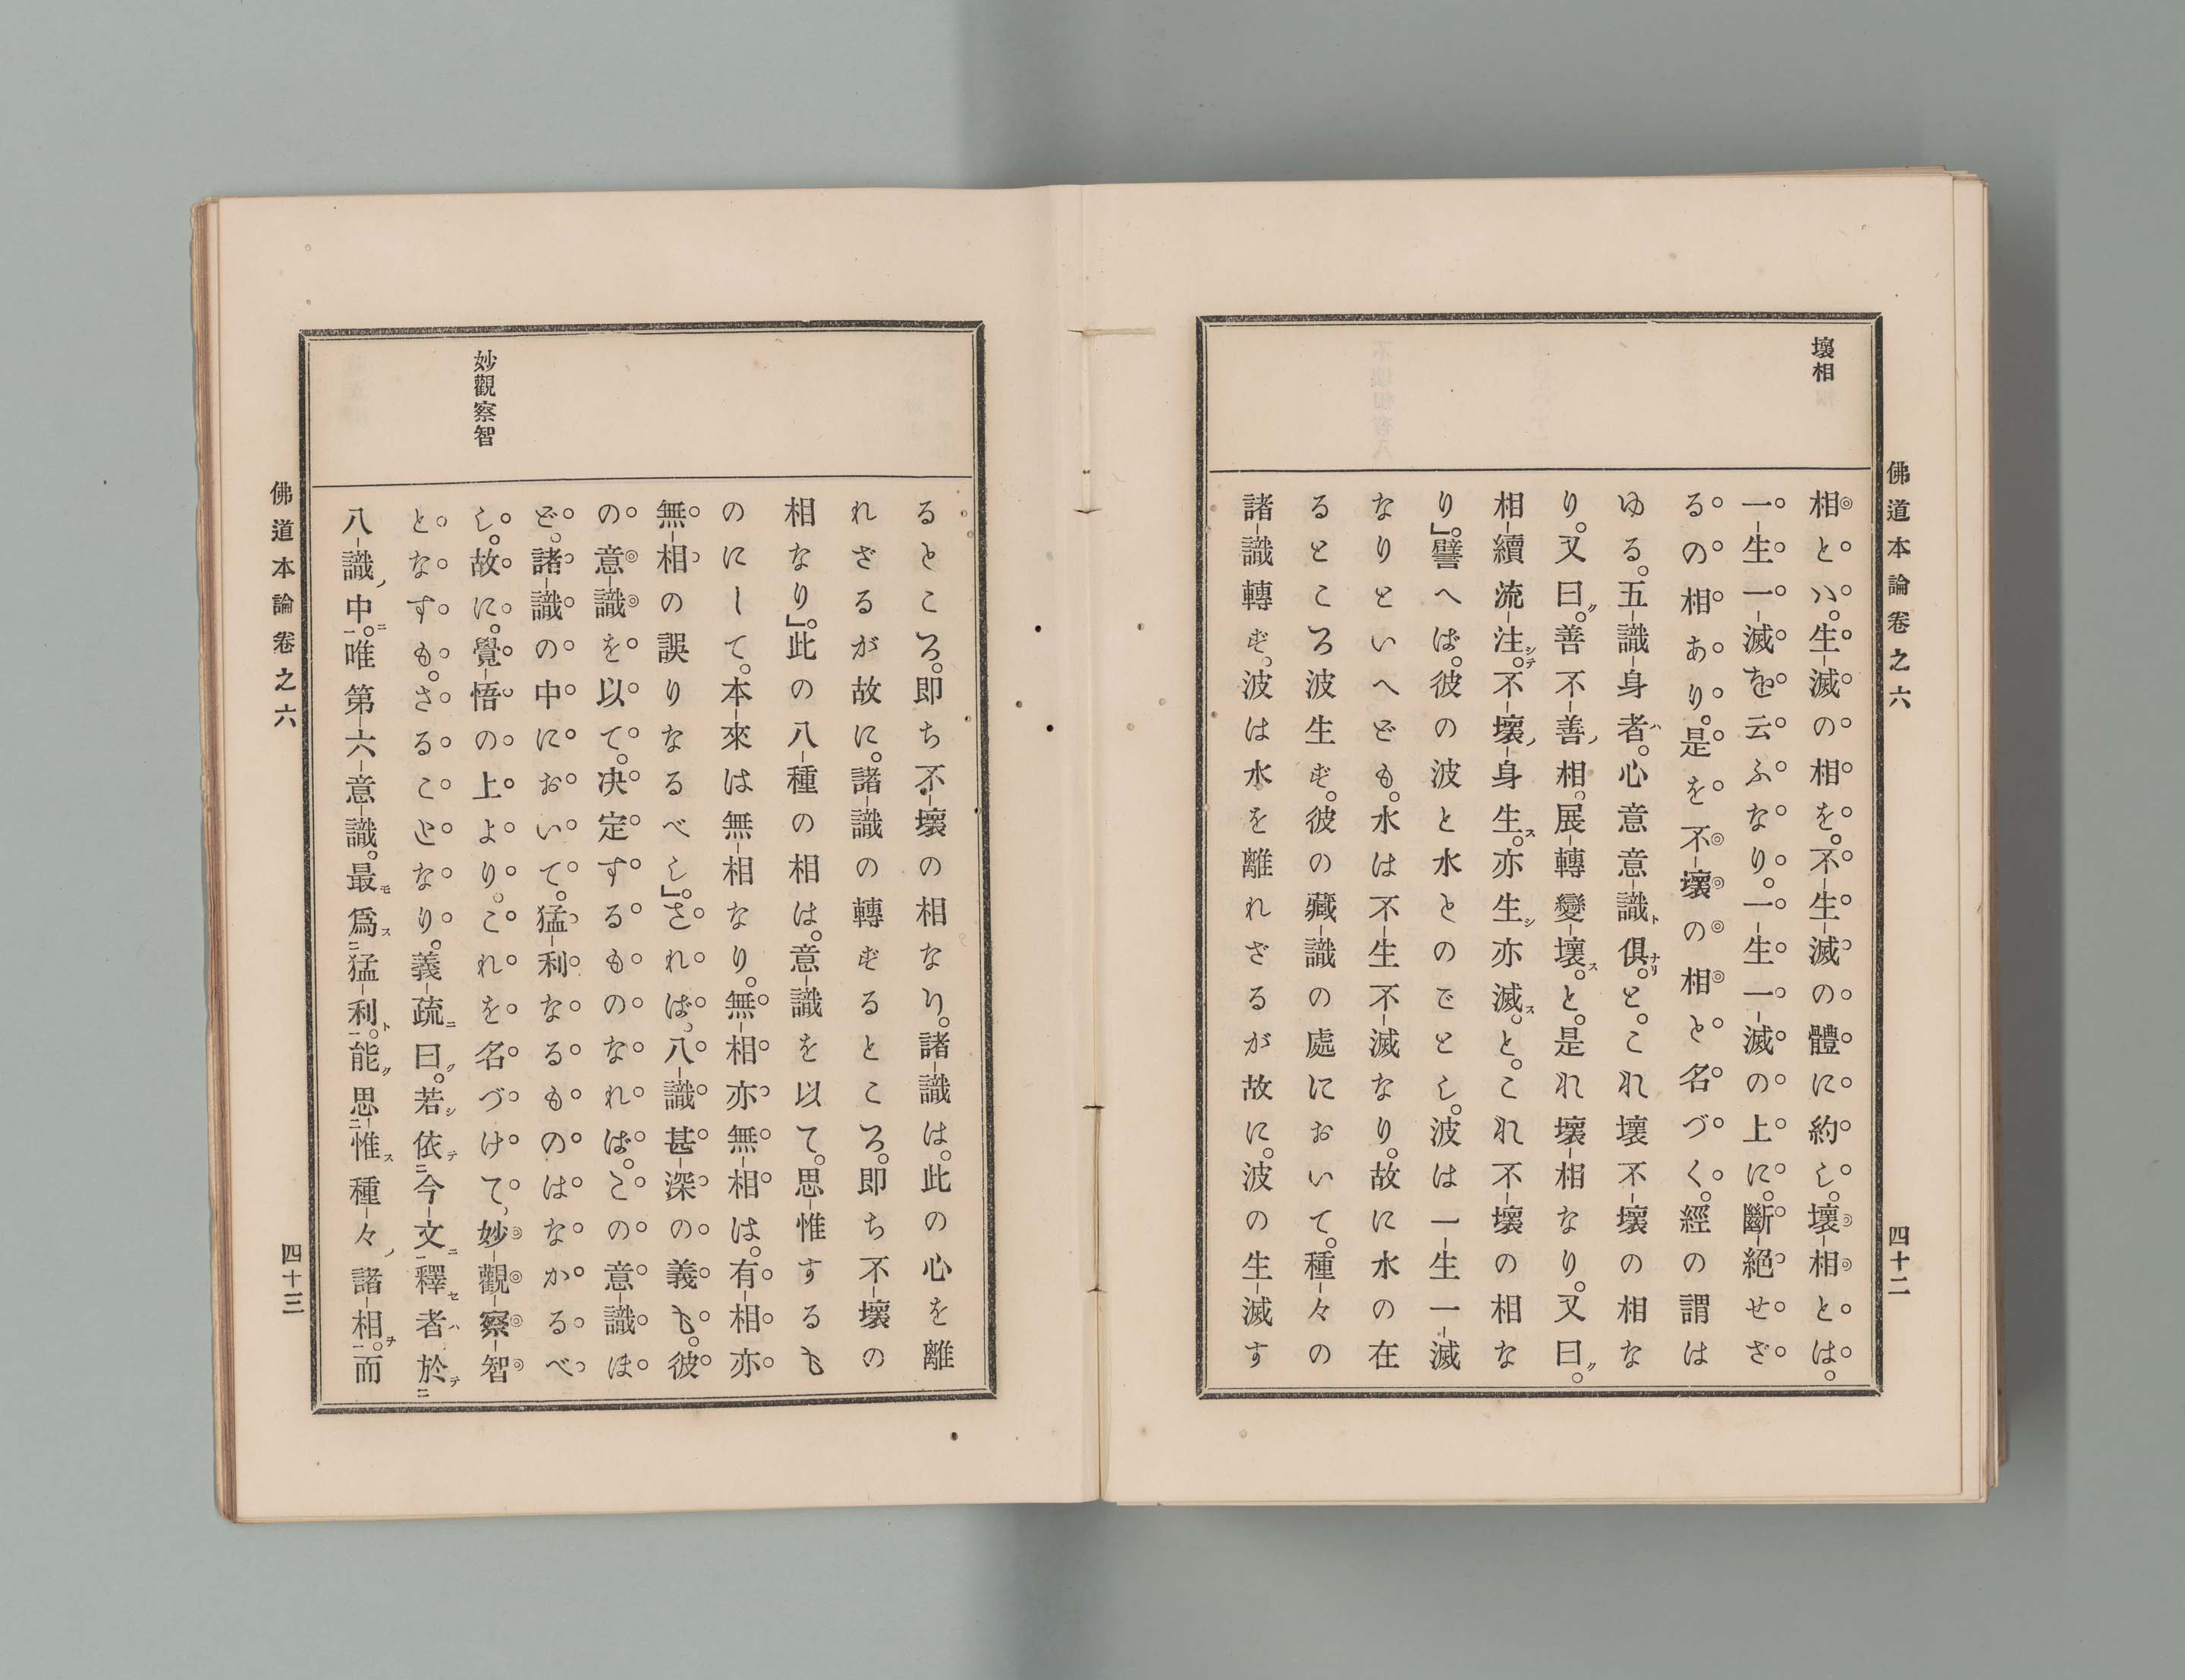 佛道本論卷之六
四十二
壞相
相とハ。生滅の相を。不生滅の體に約し。壞相とは。
一生一滅を云ふなり。一生一滅の上に。斷絕せざ
るの相あり。是を不壞の相と名づく。經の謂は
ゆる。五識身者ハ。心意意識ト俱ナリ。と。これ壞不壞の相な
り。又曰ク。善不善ノ相。展轉變壞ス。と。是れ壞相なり。又曰ク。
相續流注シテ。不壞ノ身生ス。亦生シ亦滅ス。と。これ不壞の相な
り」。譬へば。彼の波と水とのごとし。波は一生一滅
なりといへども。水は不生不滅なり。故に水の在
るところ波生ず。彼の藏識の處において。種々の
諸識轉ず。波は水を離れざるが故に。波の生滅す
るところ。即ち不壞の相なり。諸識は。此の心を離
れざるが故に。諸識の轉ずるところ。即ち不壞の
相なり」。此の八種の相は。意識を以て。思惟するも
のにして。本來は無相なり。無相亦無相は。有相亦
無相の誤りなるべし」。されば、八識甚深の義も。彼
の意識を以て。决定するものなれば。この意識は
ど。諸識の中において。猛利なるものはなかるべ
し。故に。覺悟の上より。これを名づけて、妙觀察智
となすも。さることなり。義疏ニ曰ク。若シ依テ二今文ニ一釋セハ者於テ二
八識ノ中ニ一。唯第六意識。最モ爲ス二猛利ト一。能ク思二惟ス種々ノ諸相ヲ一。而
妙觀察智
佛道本論卷之六
四十三